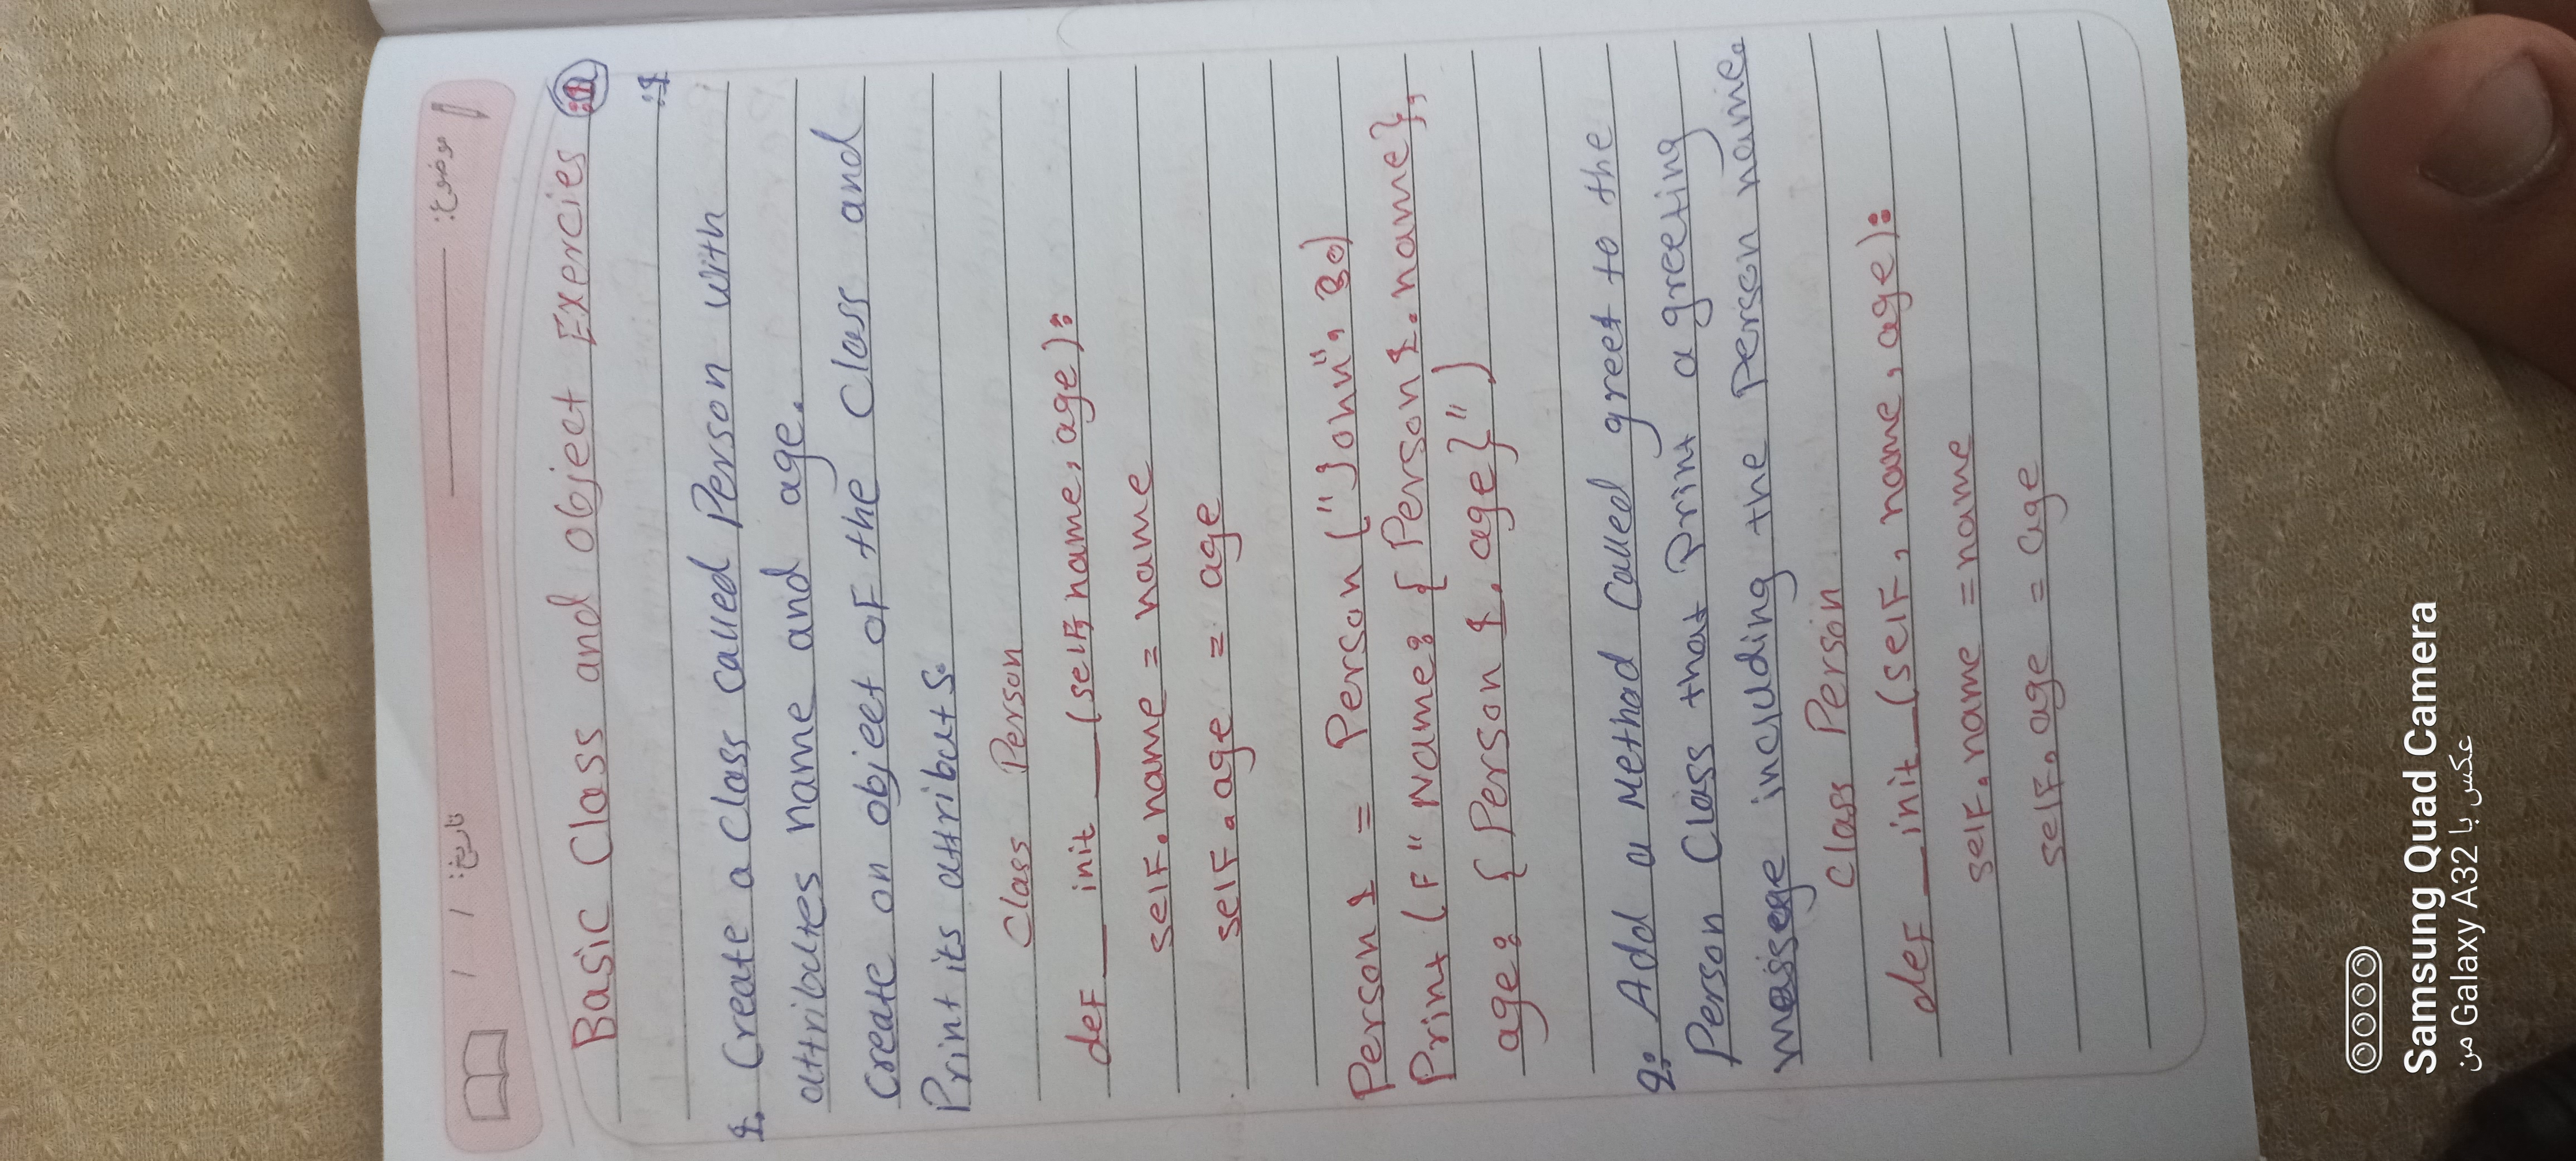 موضوع:
تاریخ: / /
Basic Class and Object Exercies :1
:1
1. Create a Class Called Person with
attributes name and age.
Create on object of the Class and
Print its attributs.
Class Person
def __ init __ (self, name, age):
self.name = name
self.age = age
Person 1 = Person ("John", 30)
Print (F" Name: { Person 1. name},
age: { Person 1. age}")
2: Add a Method Called greet to the
Person Class that Print a greeting
messege including the Person name.
Class Person
def __init__(self, name, age):
self.name = name
self.age = age
Samsung Quad Camera
عکس با Galaxy A32 من